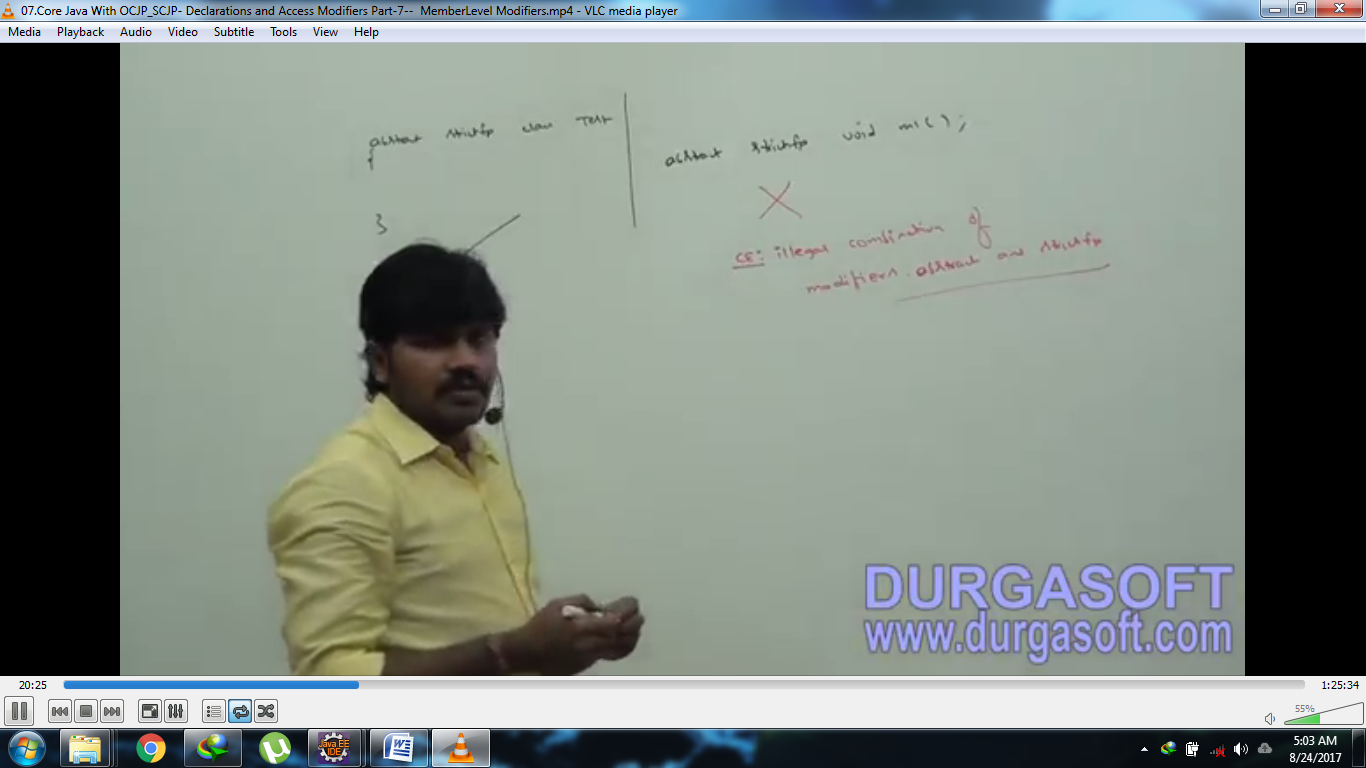 07.Core Java With OCJP_SCJP- Declarations and Access Modifiers Part-7-- MemberLevel Modifiers.mp4 - VLC media player
Media Playback Audio Video Subtitle Tools View Help
abstract strictfp class Test
{
}
abstract strictfp void m1();
CE: illegal combination of
modifiers: abstract and strictfp
DURGASOFT
www.durgasoft.com
20:25
1:25:34
55%
Java EE
IDE
W
5:03 AM
8/24/2017